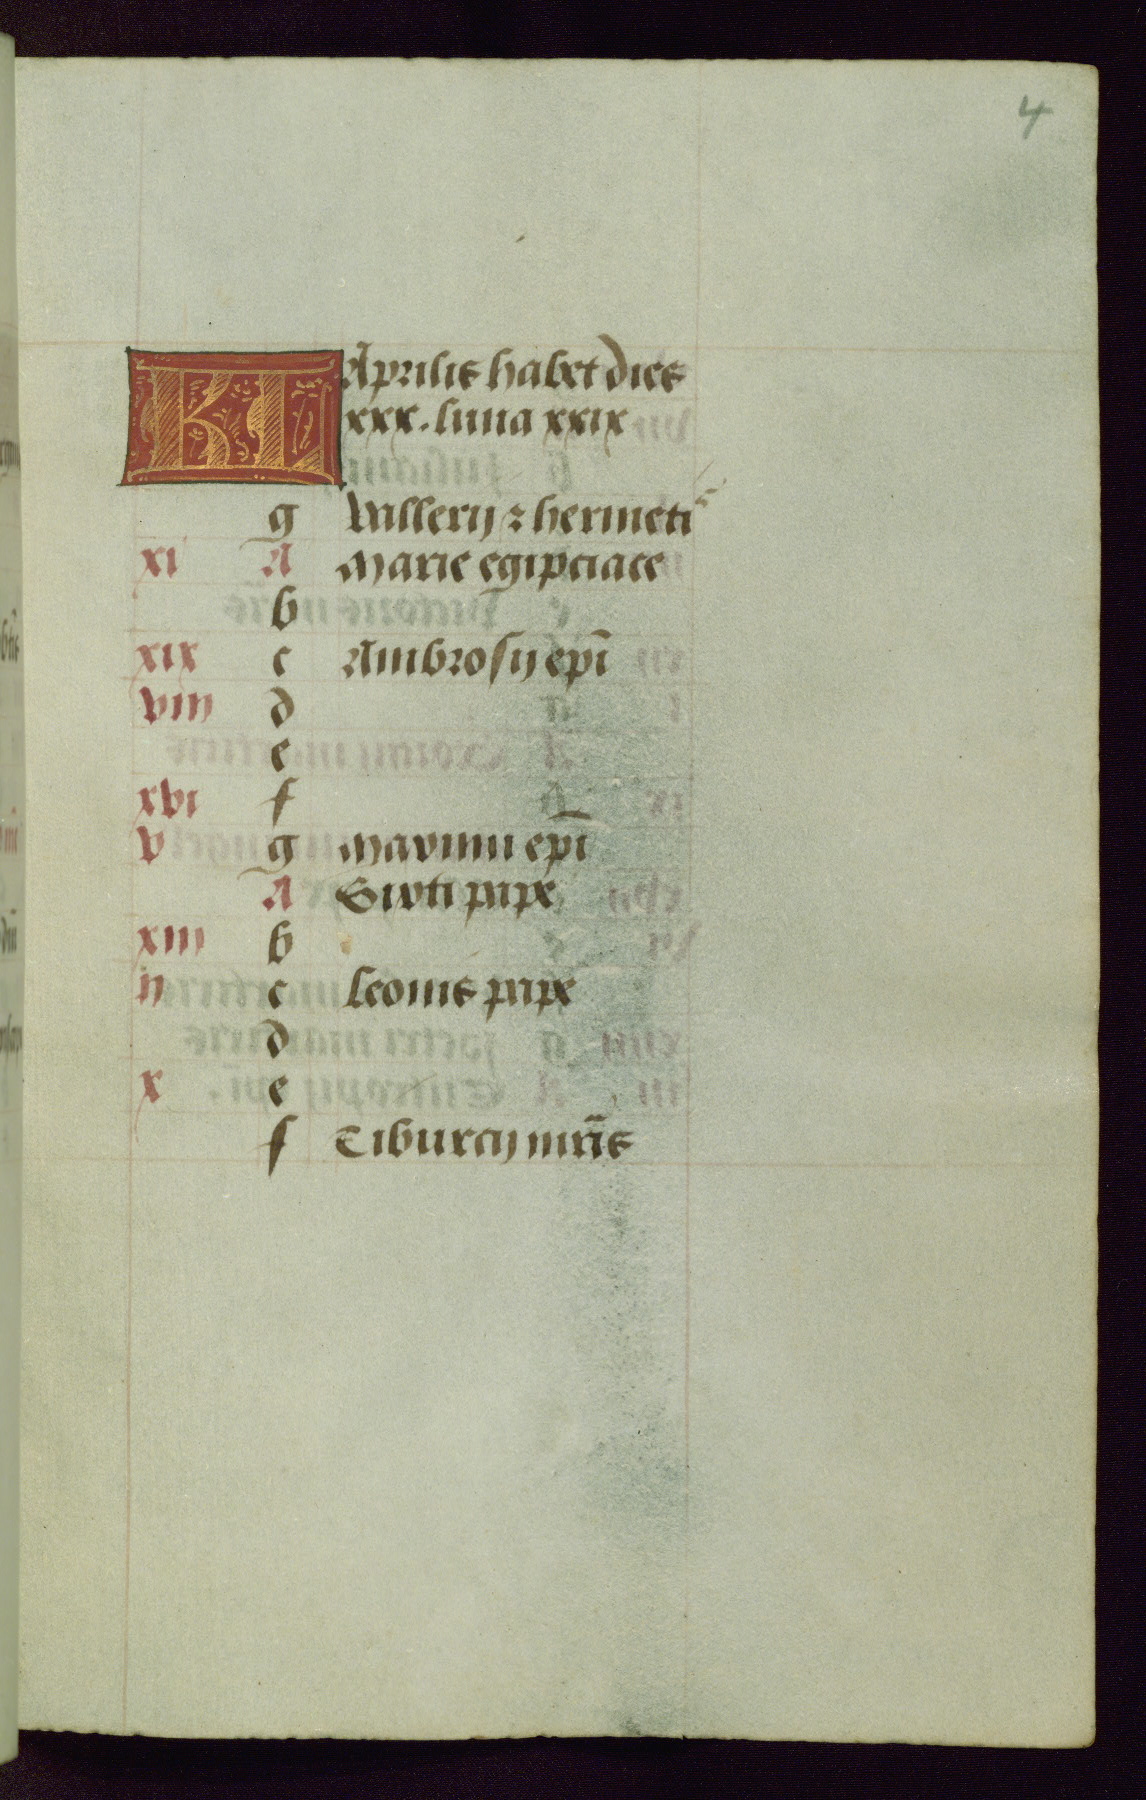 4
KL Aprilis habet dies
xxx. luna xxix
g Vallerij ⁊ hermetī
xi A Marie egipciace
b
xix c Ambrosij epī
viii d
e
xvi f
v g Maximi epī
A Sixti pape
xiii b
ii c Leonis pape
d
x e
f Tiburcij mr̄is